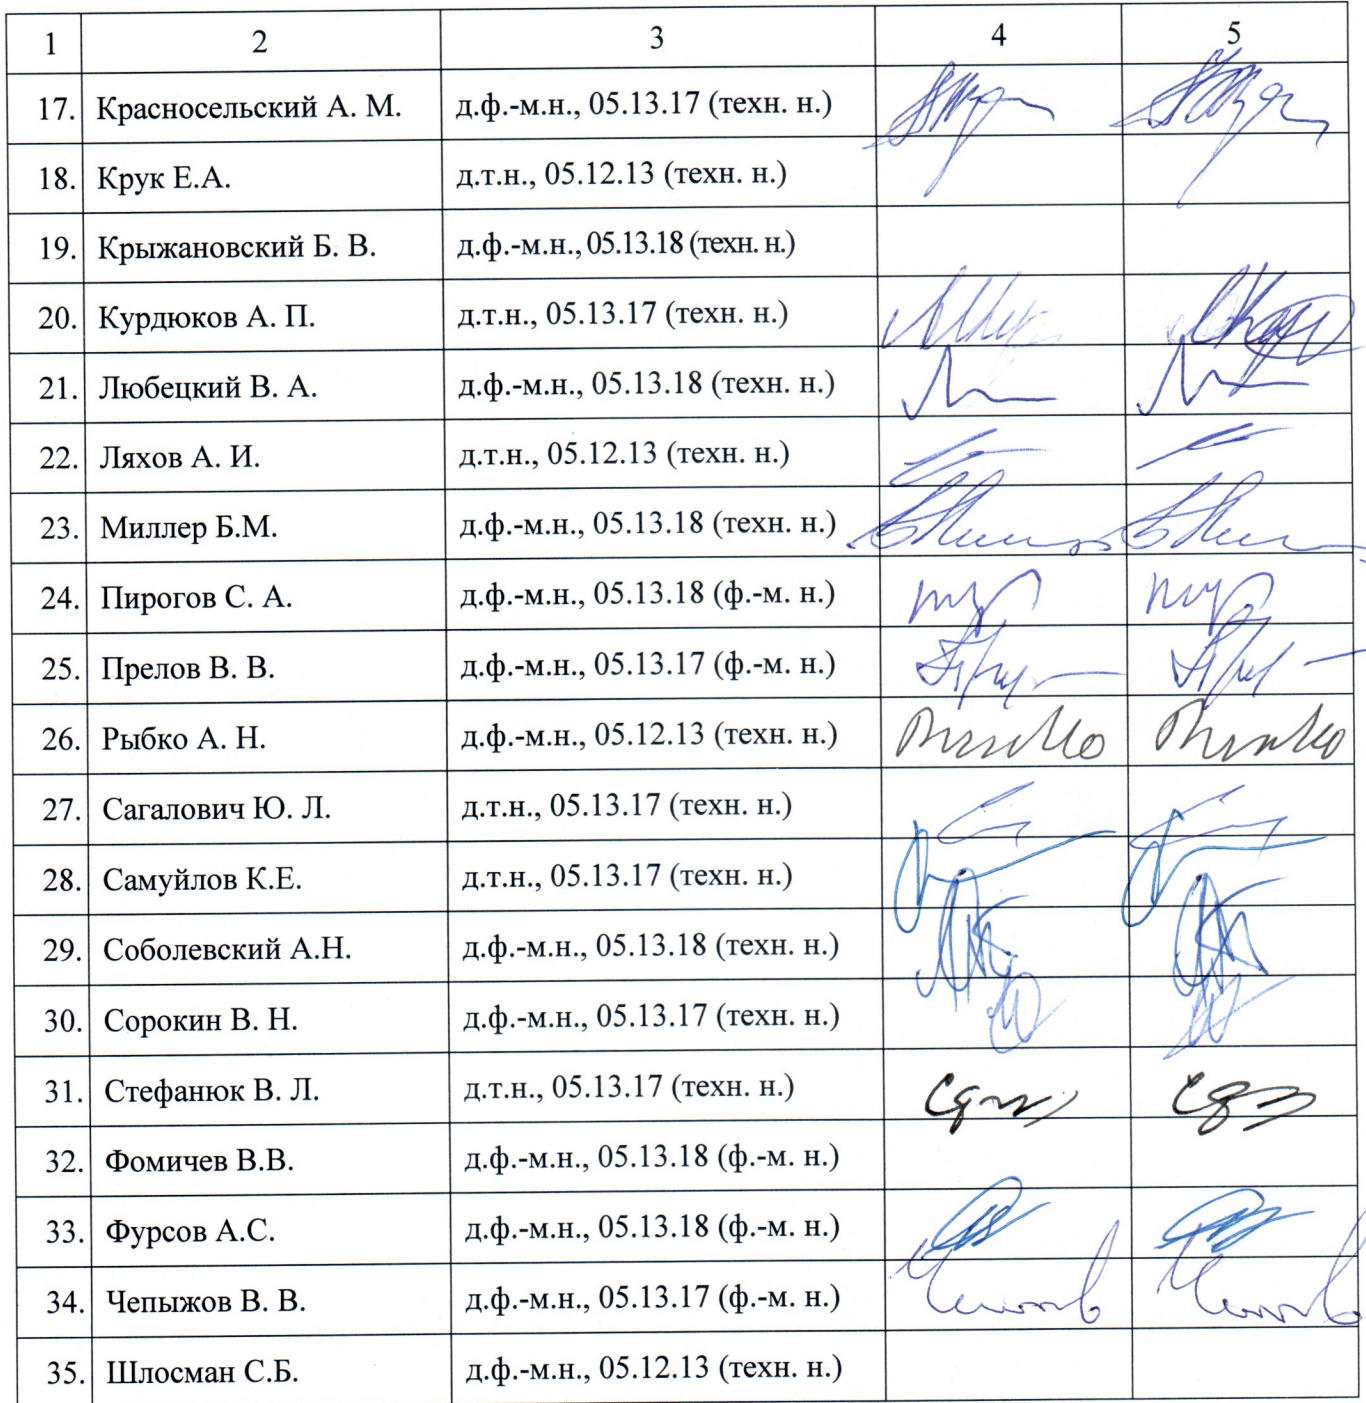 1 2 3 4 5
17. Красносельский А. М. д.ф.-м.н., 05.13.17 (техн. н.)
18. Крук Е.А. д.т.н., 05.12.13 (техн. н.)
19. Крыжановский Б. В. д.ф.-м.н., 05.13.18 (техн. н.)
20. Курдюков А. П. д.т.н., 05.13.17 (техн. н.)
21. Любецкий В. А. д.ф.-м.н., 05.13.18 (техн. н.)
22. Ляхов А. И. д.т.н., 05.12.13 (техн. н.)
23. Миллер Б.М. д.ф.-м.н., 05.13.18 (техн. н.)
24. Пирогов С. А. д.ф.-м.н., 05.13.18 (ф.-м. н.)
25. Прелов В. В. д.ф.-м.н., 05.13.17 (ф.-м. н.)
26. Рыбко А. Н. д.ф.-м.н., 05.12.13 (техн. н.)
27. Сагалович Ю. Л. д.т.н., 05.13.17 (техн. н.)
28. Самуйлов К.Е. д.т.н., 05.13.17 (техн. н.)
29. Соболевский А.Н. д.ф.-м.н., 05.13.18 (техн. н.)
30. Сорокин В. Н. д.ф.-м.н., 05.13.17 (техн. н.)
31. Стефанюк В. Л. д.т.н., 05.13.17 (техн. н.)
32. Фомичев В.В. д.ф.-м.н., 05.13.18 (ф.-м. н.)
33. Фурсов А.С. д.ф.-м.н., 05.13.18 (ф.-м. н.)
34. Чепыжов В. В. д.ф.-м.н., 05.13.17 (ф.-м. н.)
35. Шлосман С.Б. д.ф.-м.н., 05.12.13 (техн. н.)